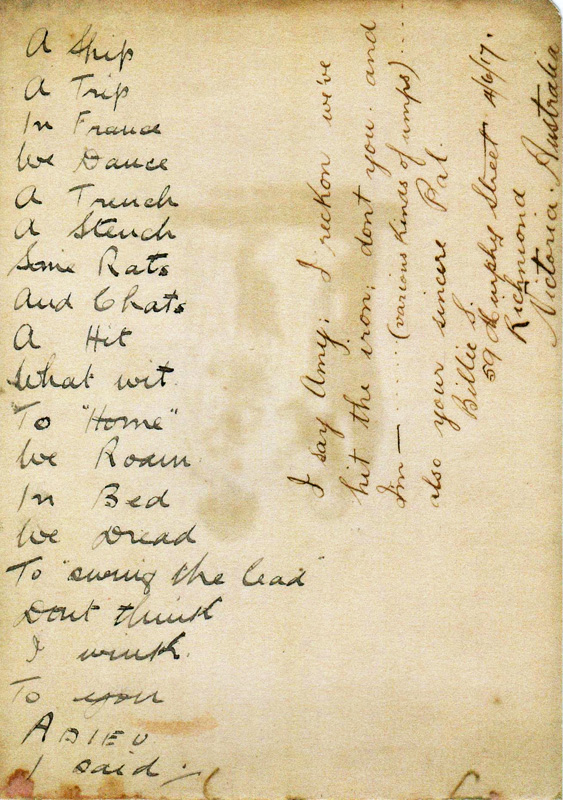 A Ship
A Trip
In France
We Dance
A Trench
A Stench
Some Rats
And Chats
A Hit
What wit
To "Home"
We Roam
In Bed
We Dread
To "swing the lead"
Dont think
I wink.
To you
ADIEU
I said.
I say Amy; I reckon we've
hit the iron; don't you. and
I'm — ...... (various kinds of umps) ....
also your sincere Pal.
Billie S.
59 Murphy Street 4/6/17.
Richmond
Victoria. Australia